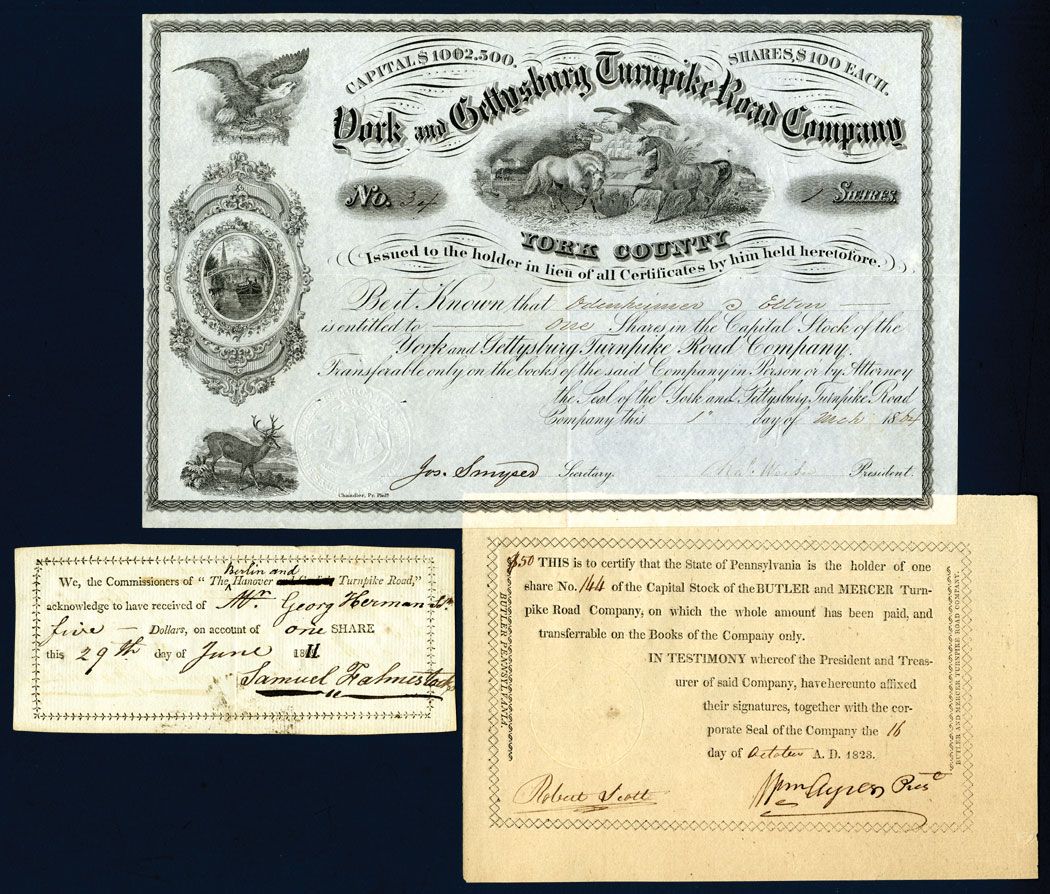 CAPITAL $ 1002.500. SHARES, $ 100 EACH.
York and Gettysburg Turnpike Road Company
No. 34 1 SHARES.
YORK COUNTY
(Issued to the holder in lieu of all Certificates by him held heretofore.)
Be it Known that Odenheimer & Elton
is entitled to one Shares in the Capital Stock of the
York and Gettysburg Turnpike Road Company.
Transferable only on the books of the said Company in Person or by Attorney
the Seal of the York and Gettysburg Turnpike Road
Company this 1st day of Mch 1864
Jos. Smyser Secretary. President.
Chandler, Pr. Phila
Berlin and
We, the Commissioners of "The Hanover Turnpike Road,"
acknowledge to have received of Mr. Georg Herman
five Dollars, on account of one SHARE
this 29th day of June 1811
Samuel Fahnestock
$50 THIS is to certify that the State of Pennsylvania is the holder of one
share No. 144 of the Capital Stock of the BUTLER and MERCER Turn-
pike Road Company, on which the whole amount has been paid, and
transferrable on the Books of the Company only.
IN TESTIMONY whereof the President and Treas-
urer of said Company, have hereunto affixed
their signatures, together with the cor-
porate Seal of the Company the 16
day of October A. D. 1823.
Robert Scott Wm Ayres Prest
BUTLER PENNSYLVANIA.
BUTLER AND MERCER TURNPIKE ROAD COMPANY.